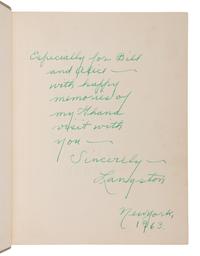 Especially for Bill
and Alice —
with happy
memories of
my Ghana
visit with
you —
Sincerely —
Langston
New York,
1963.